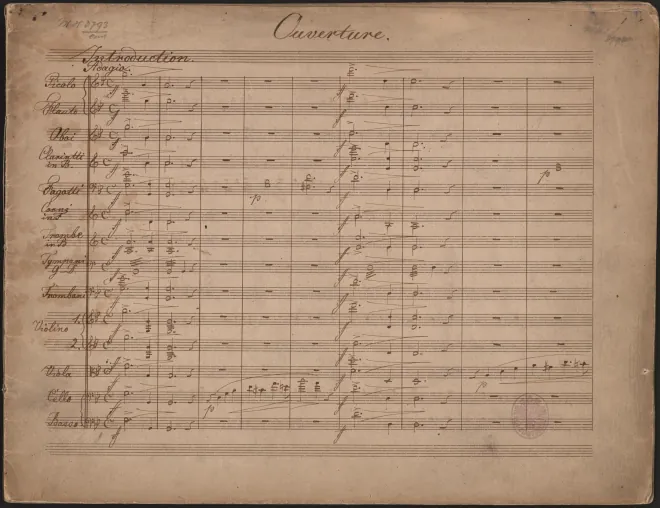 Ouverture.
Introduction.
Adagio.
Picolo
Flauto
Oboi
Clarinetti
in B.
Fagotti
Corni
Trombe
in B
Tympani
Tromboni
Violino
1.
2.
Viola
Cello
Basso
ff
p
p
p
p